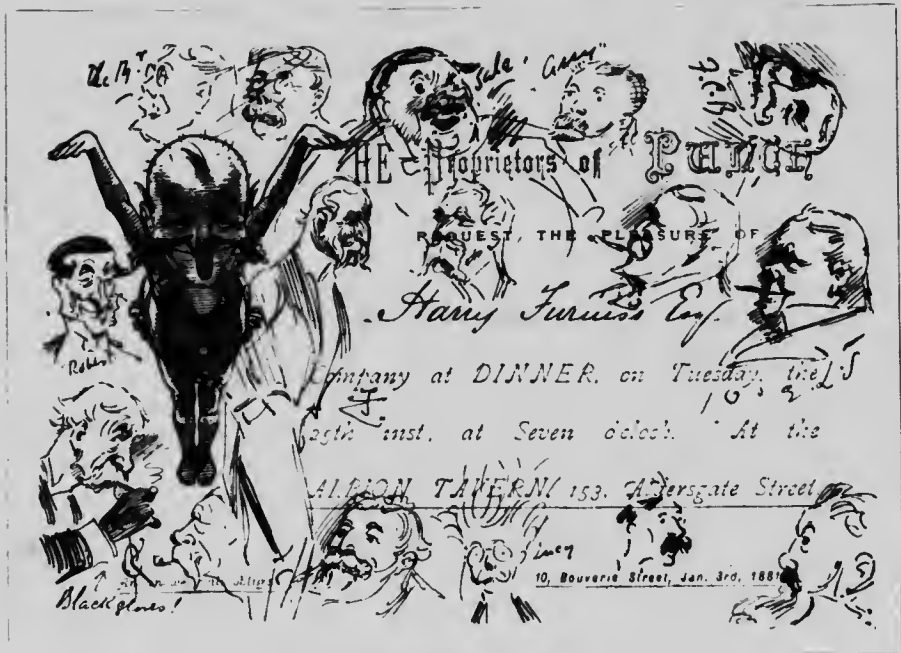 Sala
THE Proprietors of PUNCH
REQUEST THE PLEASURE OF
Harry Furniss Esq.
Company at DINNER, on Tuesday, the
25th inst. at Seven o'clock. At the
ALBION TAVERN 153, Aldersgate Street
Lucy
10, Bouverie Street, Jan. 3rd, 1881
Black gloves!